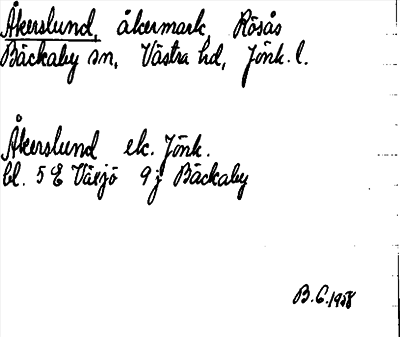 Åkerslund, åkermark, Rösås
Bäckaby sn, Västra hd, Jönk. l.
Åkerslund ek. Jönk.
bl. 5 E Växjö 9 j Bäckaby
B.G. 1958